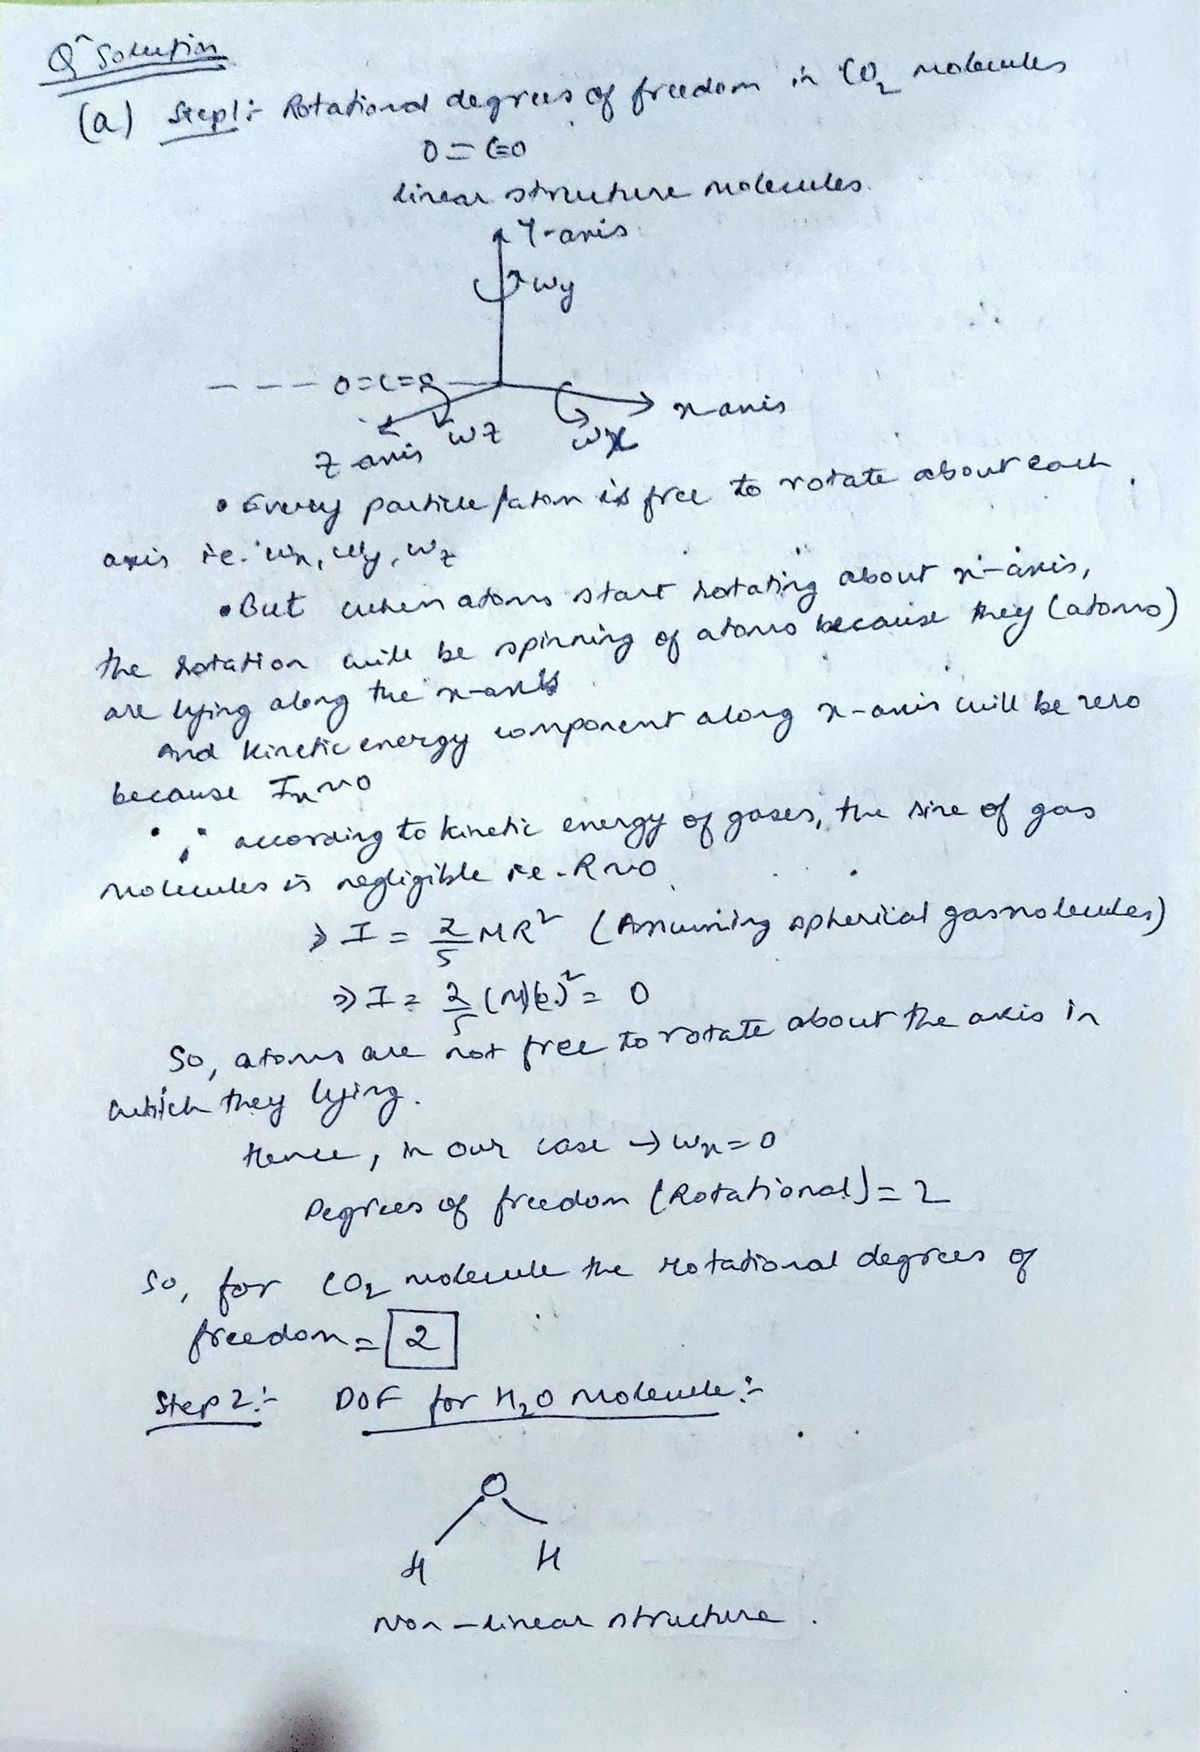 Qⁿ Solution
(a) Step1:- Rotational degrees of freedom in CO₂ molecules
O=C=O
linear structure molecules.
Y-axis
wy
--- O=C=O
x-axis
wz
wx
Z axis
• Every particle/atom is free to rotate about each
axis i.e. wx, wy, wz
• But when atoms start rotating about x-axis,
the rotation will be spinning of atoms because they (atoms)
are lying along the x-axis
and kinetic energy component along x-axis will be zero
because Ix~0
∵ according to kinetic energy of gases, the size of gas
molecules is negligible i.e. R~0
⇒ I = 2/5 MR² (Assuming spherical gas molecules)
⇒ I = 2/5 (M)(0)² = 0
So, atoms are not free to rotate about the axis in
which they lying.
Hence, in our case → wx=0
Degrees of freedom (Rotational) = 2
So, for CO₂ molecule the rotational degrees of
freedom = 2
Step 2:- DOF for H₂O Molecule:-
O
H H
Non-linear structure.